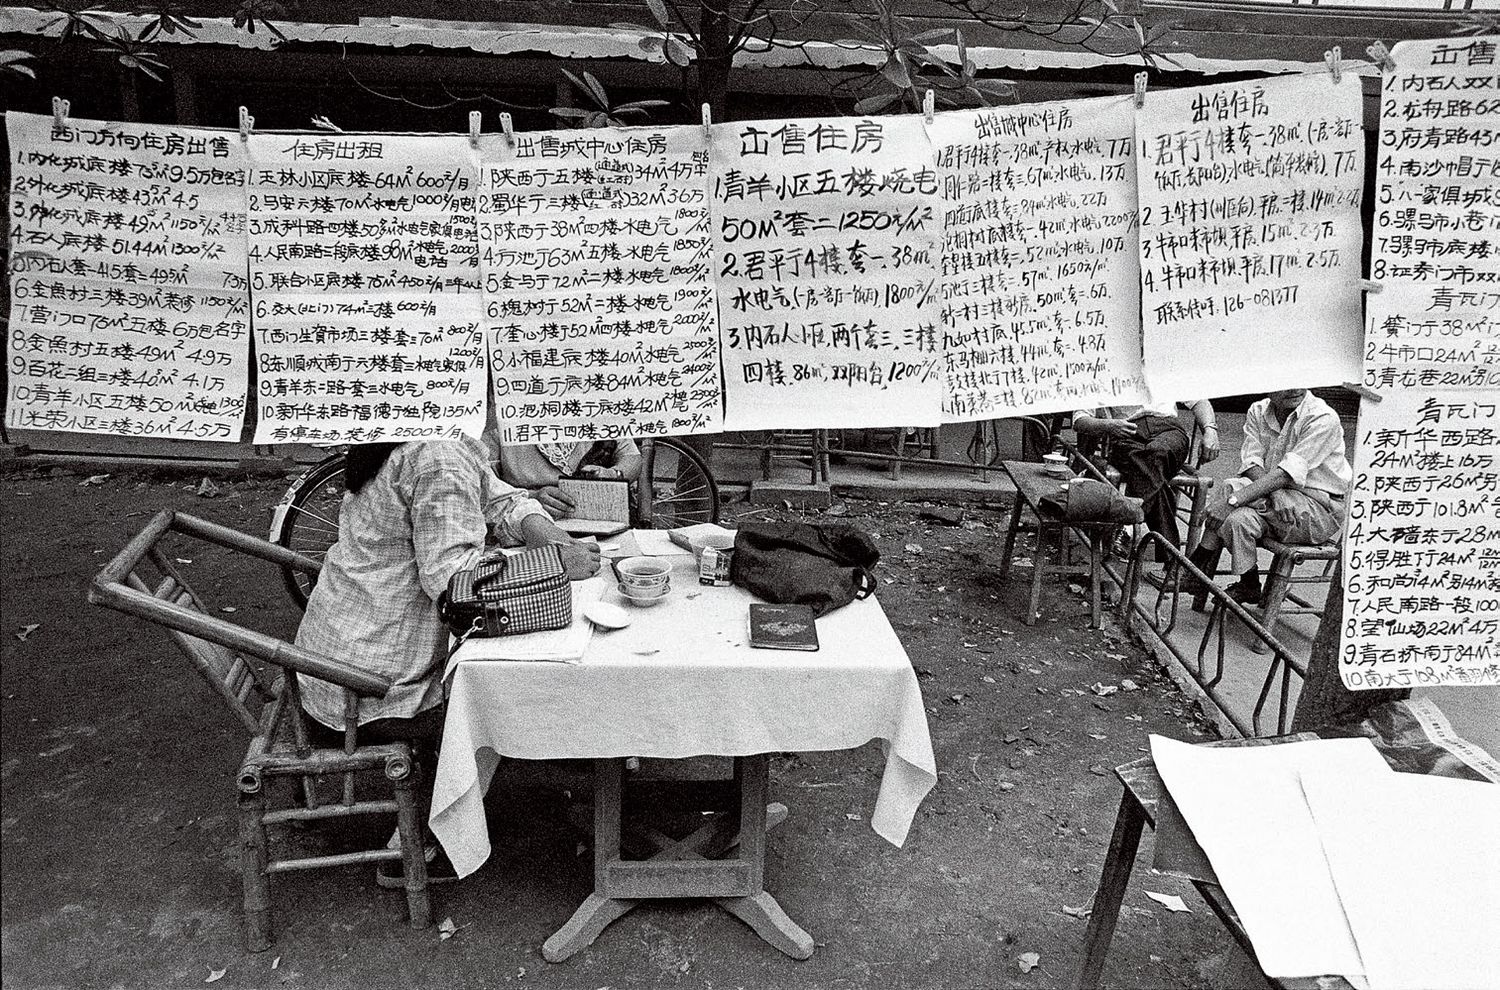 西门方向住房出售
1.内化成底楼75m² 9.5万包名字
2.外化成底楼43m² 4.5
3.外化成底楼49m² 1150元/m²
4.石人底楼51.44m² 1300元/m²
5.内石人套一41.5套二49.5m² 7.3万
6.金魚村三楼39m²装修 1150元/m²
7.营门口75m²五楼6万包名字
8.金魚村五楼49m² 4.9万
9.百花二组三楼40m² 4.1万
10.青羊小区五楼50m²
11.光荣小区三楼36m² 4.5万
住房出租
1.玉林小区底楼64m² 600元/月
2.马安六楼70m²水电气1000元/月
3.成科路四楼50多m²水电气家俱 1500元/月
4.人民南路三段底楼98m²水电气电话 2000元/月
5.联合小区底楼76m² 450元/月三年以上
6.交大(北门)74m²三楼 600元/月
7.西门生資市场三楼套三76m² 800元/月
8.东順城南亍六楼套三水电气家俱 1200元/月
9.青羊东二路套三水电气 800元/月
10.新华东路福德亍 135m²
有停车场.装修 2500元/月
出售城中心住房
1.陕西亍五楼 34m² 4万
2.蜀华亍三楼 32m² 3.6万
3.陕西亍38m²四楼水电气 1800元/m²
4.方池亍63m²五楼水电气 1850元/m²
5.金马亍72m²二楼水电气 1800元/m²
6.槐树亍52m²二楼水电气 1900元/m²
7.奎心楼亍52m²四楼水电气 2000元/m²
8.小福建底楼40m²水电气 2500元/m²
9.四道亍底楼84m²水电气 2400元/m²
10.泡桐楼亍底楼42m² 2300元/m²
11.君平亍四楼38m²水电气 1800元/m²
出售住房
1.青羊小区五楼烧电
50m²套二1250元/m²
2.君平亍4楼.套一.38m².
水电气.(一房一客厅一饭厅).1800元/m²
3.内石人小区.两个套三.三楼
四楼.86m².双阳台.1200元/m²
出售城中心住房
君平亍4楼套一.38m².产权.水电气.7万
同仁路二楼套三.67m²水电气.13万
四道亍底楼套三.84m²水电气.22万
泡桐树底楼套一.42m².水电气.2200元/m²
52m²水电气.10万
57m².1650元/m²
50m²套二.6万
九如村底.45.5m²套一.6.5万
东马棚六楼.44m².套一.4.8万
42m².1500元/m²
出售住房
1.君平亍4楼套一.38m².(一房一厅一
饭厅.长阳台).水电气(简单装修).7万
2.玉华村(小区内).平房.二楼.14m².2.2万
3.牛市口杮市坝.平房.15m².2.3万
4.牛市口杮市坝.平房.17m².2.5万.
联系传呼:126-081377
出售
1.内石人双
2.龙舟路62
3.府青路45m
4.南沙帽亍
5.八一家俱城
6.骡马市小巷
7.骡马市底楼
8.证券门市双
青瓦门
1.簧门亍38m²
2.牛市口24m²
3.青龙巷22m²
青瓦门
1.新华西路
24m²楼上16万
2.陕西亍26m²
3.陕西亍101.8m²
4.大墙东亍28m
5.得胜下亍24m²
6.和尚亍4m²
7.人民南路一段100
8.望仙场22m² 4万
9.青石桥南亍84m²
10.南大亍108m²